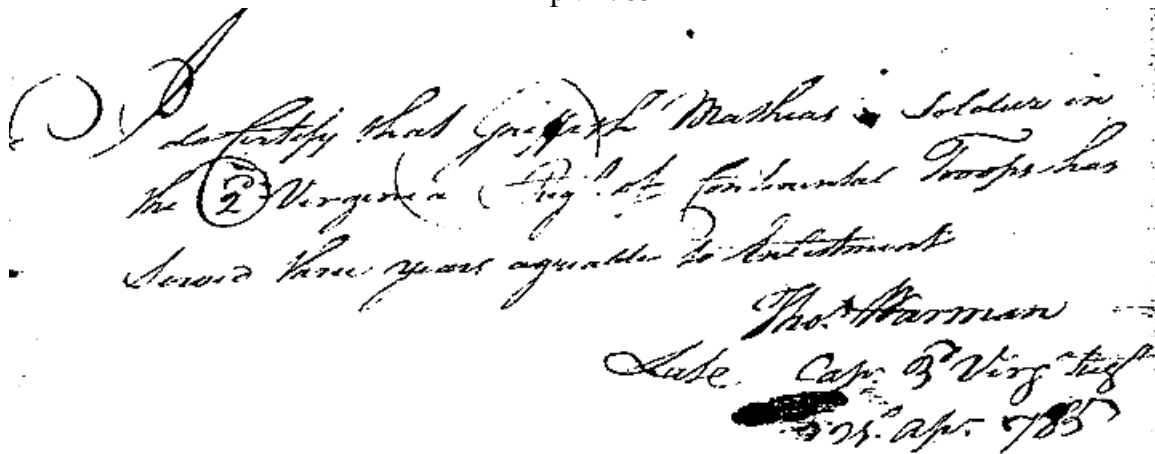 I do Certify that Griffith Mathias a Soldier in
the 2d Virginia Regt. of Continental Troops has
Served three years agreable to Enlistment
Thos. Warman
Late Capt. 3d Virga. Regt
Apr. 785